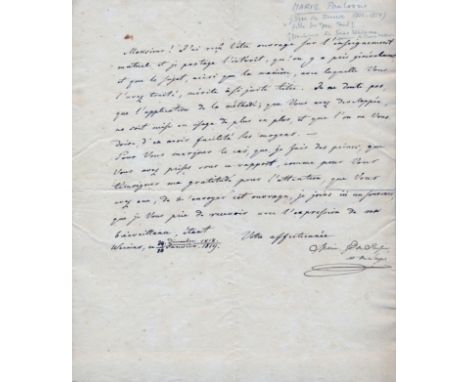 MARIE Paulowna
Monsieur ! J'ai reçu Votre ouvrage sur l'enseignement
mutuel et je partage l'intérêt, qu'on y a pris généralement
et que le sujet, ainsi que la manière, avec laquelle Vous
l'avez traité, mérite à si juste titre. Je ne doute pas,
que l'application de la méthode, que Vous avez developpée,
ne soit mise en usage de plus en plus, et que l'on ne Vous
doive, d'en avoir facilité les moyens. —
Pour Vous marquer le cas, que je fais des peines, que
Vous avez prises sous ce rapport, comme pour Vous
témoigner ma gratitude pour l'attention, que Vous
avez eue, de m'envoyer cet ouvrage, je joins ici
que je Vous prie de recevoir avec l'expression de ma
bienveillance, étant
Votre affectionnée
Weimar, Décembre 1818
Janvier 1819.
Marie